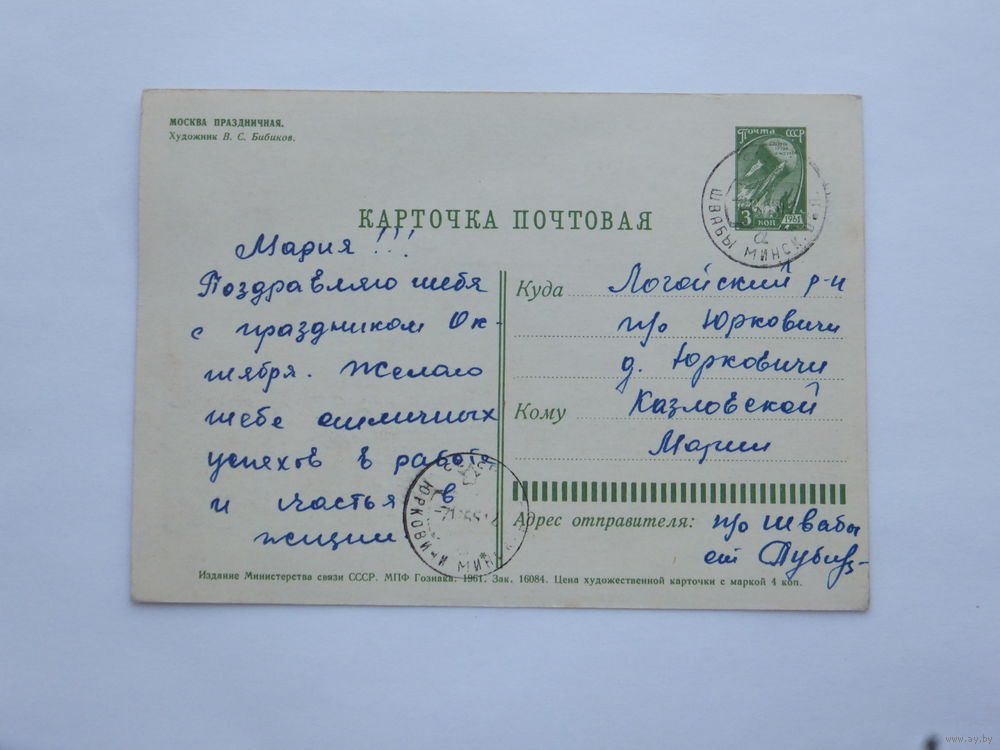 МОСКВА ПРАЗДНИЧНАЯ.
Художник В. С. Бибиков.
Почта СССР
3 коп 1961
ШВАБЫ МИНСК.
КАРТОЧКА ПОЧТОВАЯ
Мария !!!
Поздравляю тебя
с праздником Ок-
тября. Желаю
тебе отличных
успехов в работе
и счастья в
жизни.
Куда Логойский р-н
п/о Юрковичи
д. Юрковичи
Кому Казловской
Марии
Адрес отправителя: п/о Швабы
от
Издание Министерства связи СССР. МПФ Гознака. 1961. Зак. 16084. Цена художественной карточки с маркой 4 коп.
www.ay.by